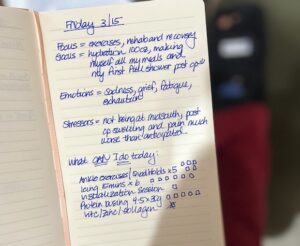 Friday 3/15
Focus = exercises, rehab and recovery
Goals = hydration 100oz, making
myself all my meals and
my first full shower post op!!
Emotions = Sadness, grief, fatigue,
exhaustion
Stressors = not being at midsouth, post
op swelling and pain much
worse than anticipated.
What can I do today:
Ankle exercises/ Quad holds x5
lung 10mins x6
visualization session
Protein dosing 4-5x 30g
vitc/zinc/collagen